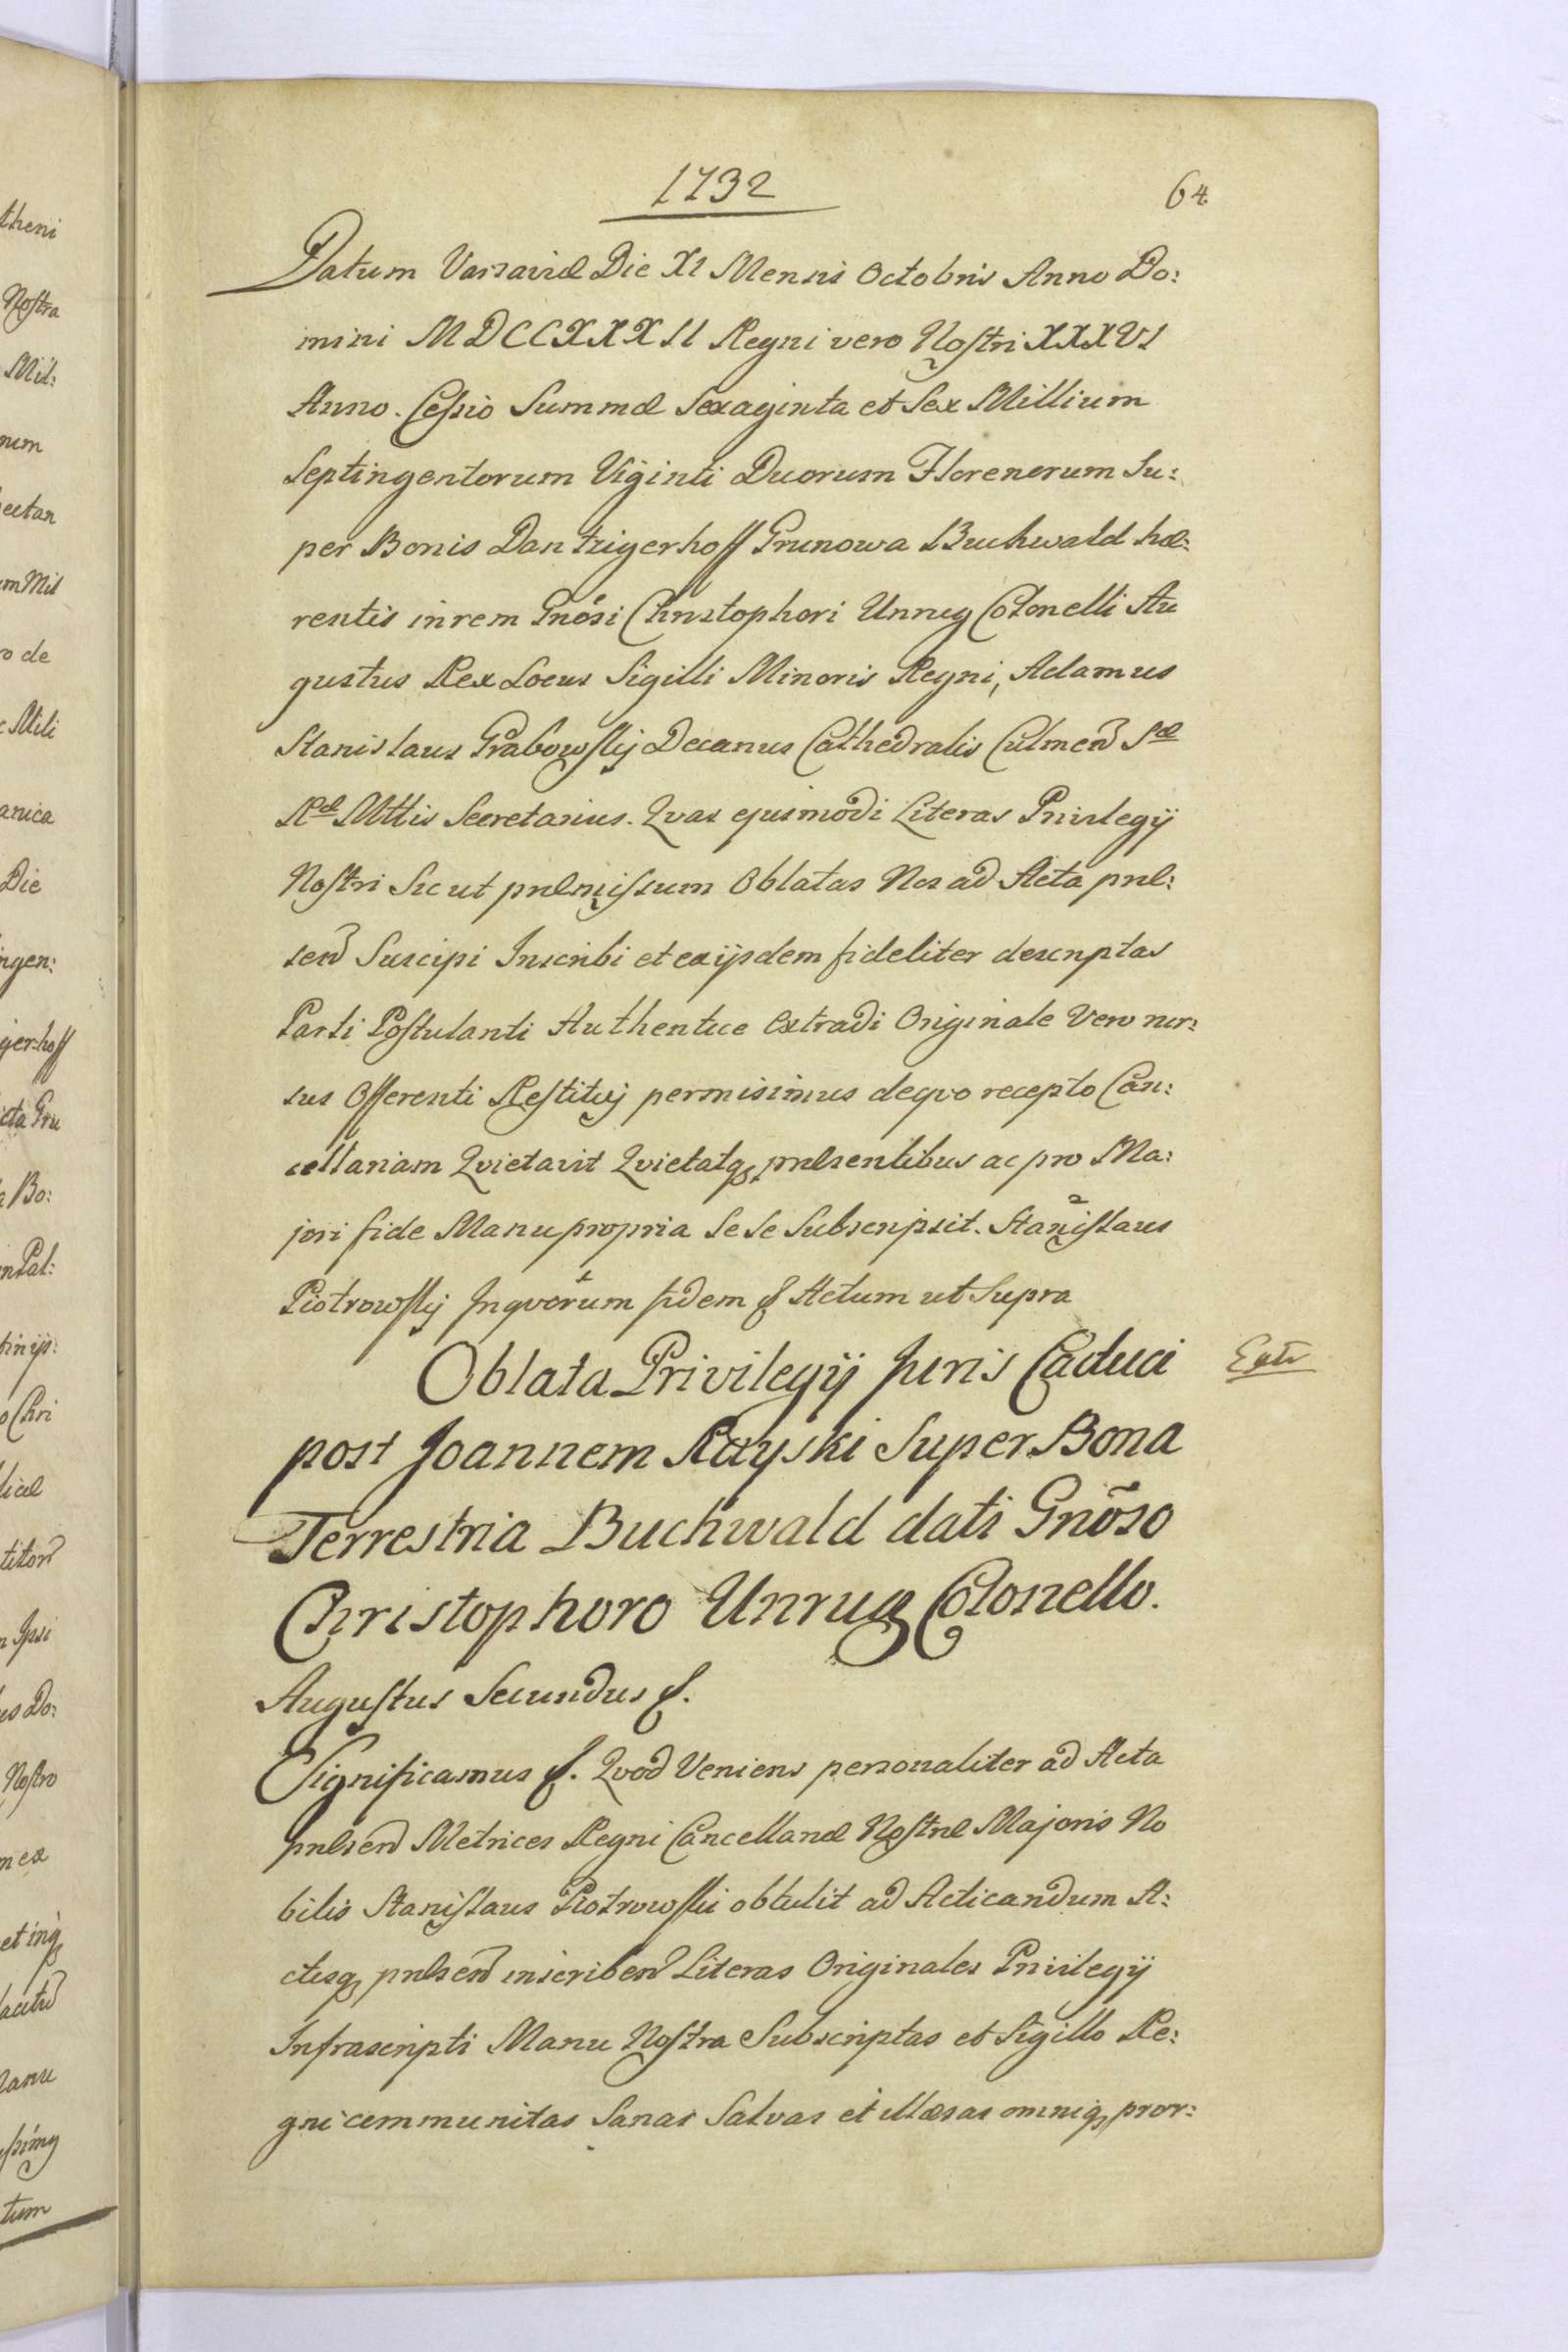 1732
64
Datum Varsaviæ Die XI Mensis Octobris Anno Do:
mini MDCCXXXII Regni vero Nostri XXXVI
Anno. Cessio Summæ Sexaginta et Sex Millium
Septingentorum Viginti Duorum Florenorum Su:
per Bonis Dantzigerhoff Grunowa Buchwald hæ:
rentis in rem Gnosi Christophori Unrug Colonelli Au
gustus Rex Locus Sigilli Minoris Regni, Adamus
Stanislaus Grabowskij Decanus Cathedralis Culmen Sæ
Ræ Mttis Secretarius. Qvas ejusmodi Literas Privilegij
Nostri Sic ut præmissum Oblatas Nos ad Acta præ:
sen Suscipi Inscribi et ex ijsdem fideliter descriptas
Parti Postulanti Authentice extradi Originale Vero rur:
sus Offerenti Restituj permisimus de qvo recepto Can:
cellariam Qvietavit Qvietatq præsentibus ac pro Ma:
jori fide Manu propria Se Se Subscripsit. Stanislaus
Piotrowskij In qvorum fidem &. Actum ut Supra
Oblata Privilegij Juris Caduci
Extr
post Joannem Rayski Super Bona
Terrestria Buchwald dati Gnõso
Christophoro Unrug Colonello.
Augustus Secundus &.
Significamus &. Qvod Veniens personaliter ad Acta
præsen Metrices Regni Cancellariæ Nostræ Majoris No
bilis Stanislaus Piotrowski obtulit ad Acticandum A:
ctisq præsen inscriben Literas Originales Privilegij
Infrascripti Manu Nostra Subscriptas et Sigillo Re:
gni communitas Sanas Salvas et illæsas omniq pror:
theni
Nostra
Mil:
num
ectan
um Mil
ro de
c Mili
anica
Die
ingen:
gerhoff
icta Gru
Bo:
in Pal:
o Chri
Ipsi
us Do:
Nostro
m ex
et inq
Manu
tum